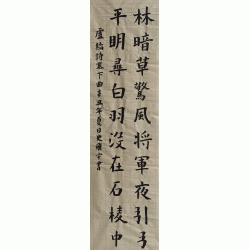 林暗草驚風將軍夜引弓
平明尋白羽沒在石棱中
盧綸詩塞下曲